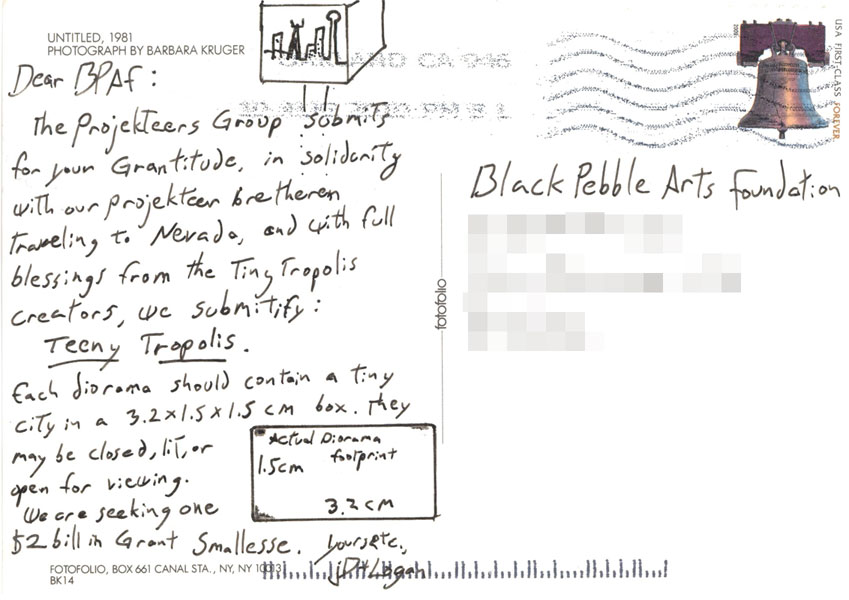 UNTITLED, 1981
PHOTOGRAPH BY BARBARA KRUGER
Dear BPAf:
The Projekteers Group submits
for your Grantitude, in solidarity
with our projekteer bretheren
traveling to Nevada, and with full
blessings from the TinyTropolis
creators, we submitify:
Teeny Tropolis.
Each diorama should contain a tiny
city in a 3.2x1.5x1.5 cm box. They
may be closed, lit, or
open for viewing.
We are seeking one
$2 bill in Grant Smallesse.
Yours etc.,
jDH Logan
Actual Diorama
footprint
1.5cm
3.2 cm
FOTOFOLIO, BOX 661 CANAL STA., NY, NY 10013
BK14
fotofolio
OAKLAND CA 946
PM
USA FIRST-CLASS FOREVER
Black Pebble Arts Foundation